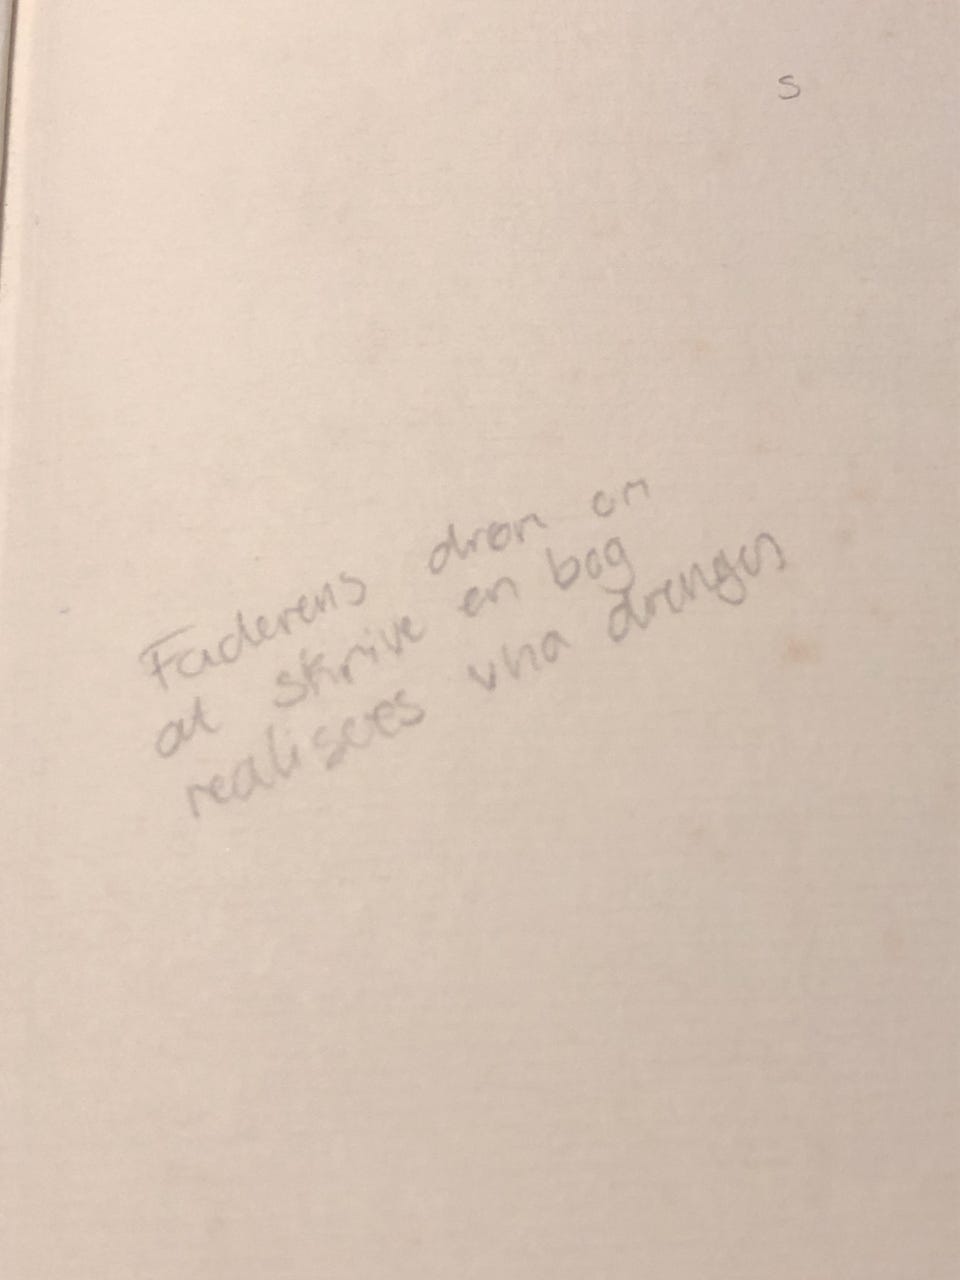 S
Faderens drøm om
at skrive en bog
realiseres vha drengen